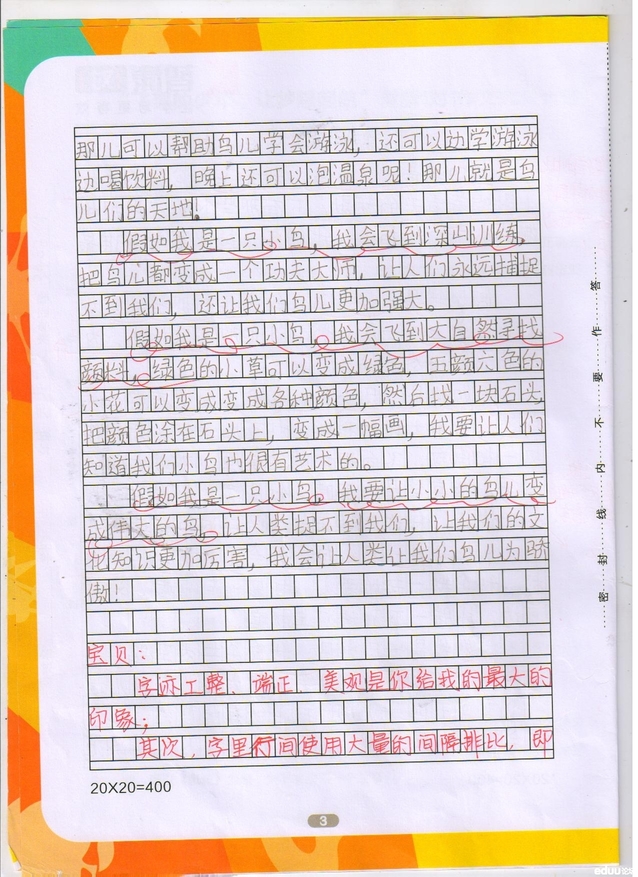 那儿可以帮助鸟儿学会游泳，还可以边学游泳
边喝饮料，晚上还可以泡温泉呢！那儿就是鸟
儿们的天地！
假如我是一只小鸟，我会飞到深山训练，
把鸟儿都变成一个功夫大师，让人们永远捕捉
不到我们，还让我们鸟儿更加强大。
假如我是一只小鸟，我会飞到大自然寻找
颜料，绿色的小草可以变成绿色，五颜六色的
小花可以变成变成各种颜色，然后找一块石头，
把颜色涂在石头上，变成一幅画，我要让人们
知道我们小鸟也很有艺术的。
假如我是一只小鸟，我要让小小的鸟儿变
成伟大的鸟，让人类捉不到我们，让我们的文
化知识更加厉害，我会让人类让我们鸟儿为骄
傲！
宝贝：
字迹工整、端正、美观是你给我的最大的
印象；
其次，字里行间使用大量的间隔排比，即
20X20=400
3
密封线内不要作答
eduu